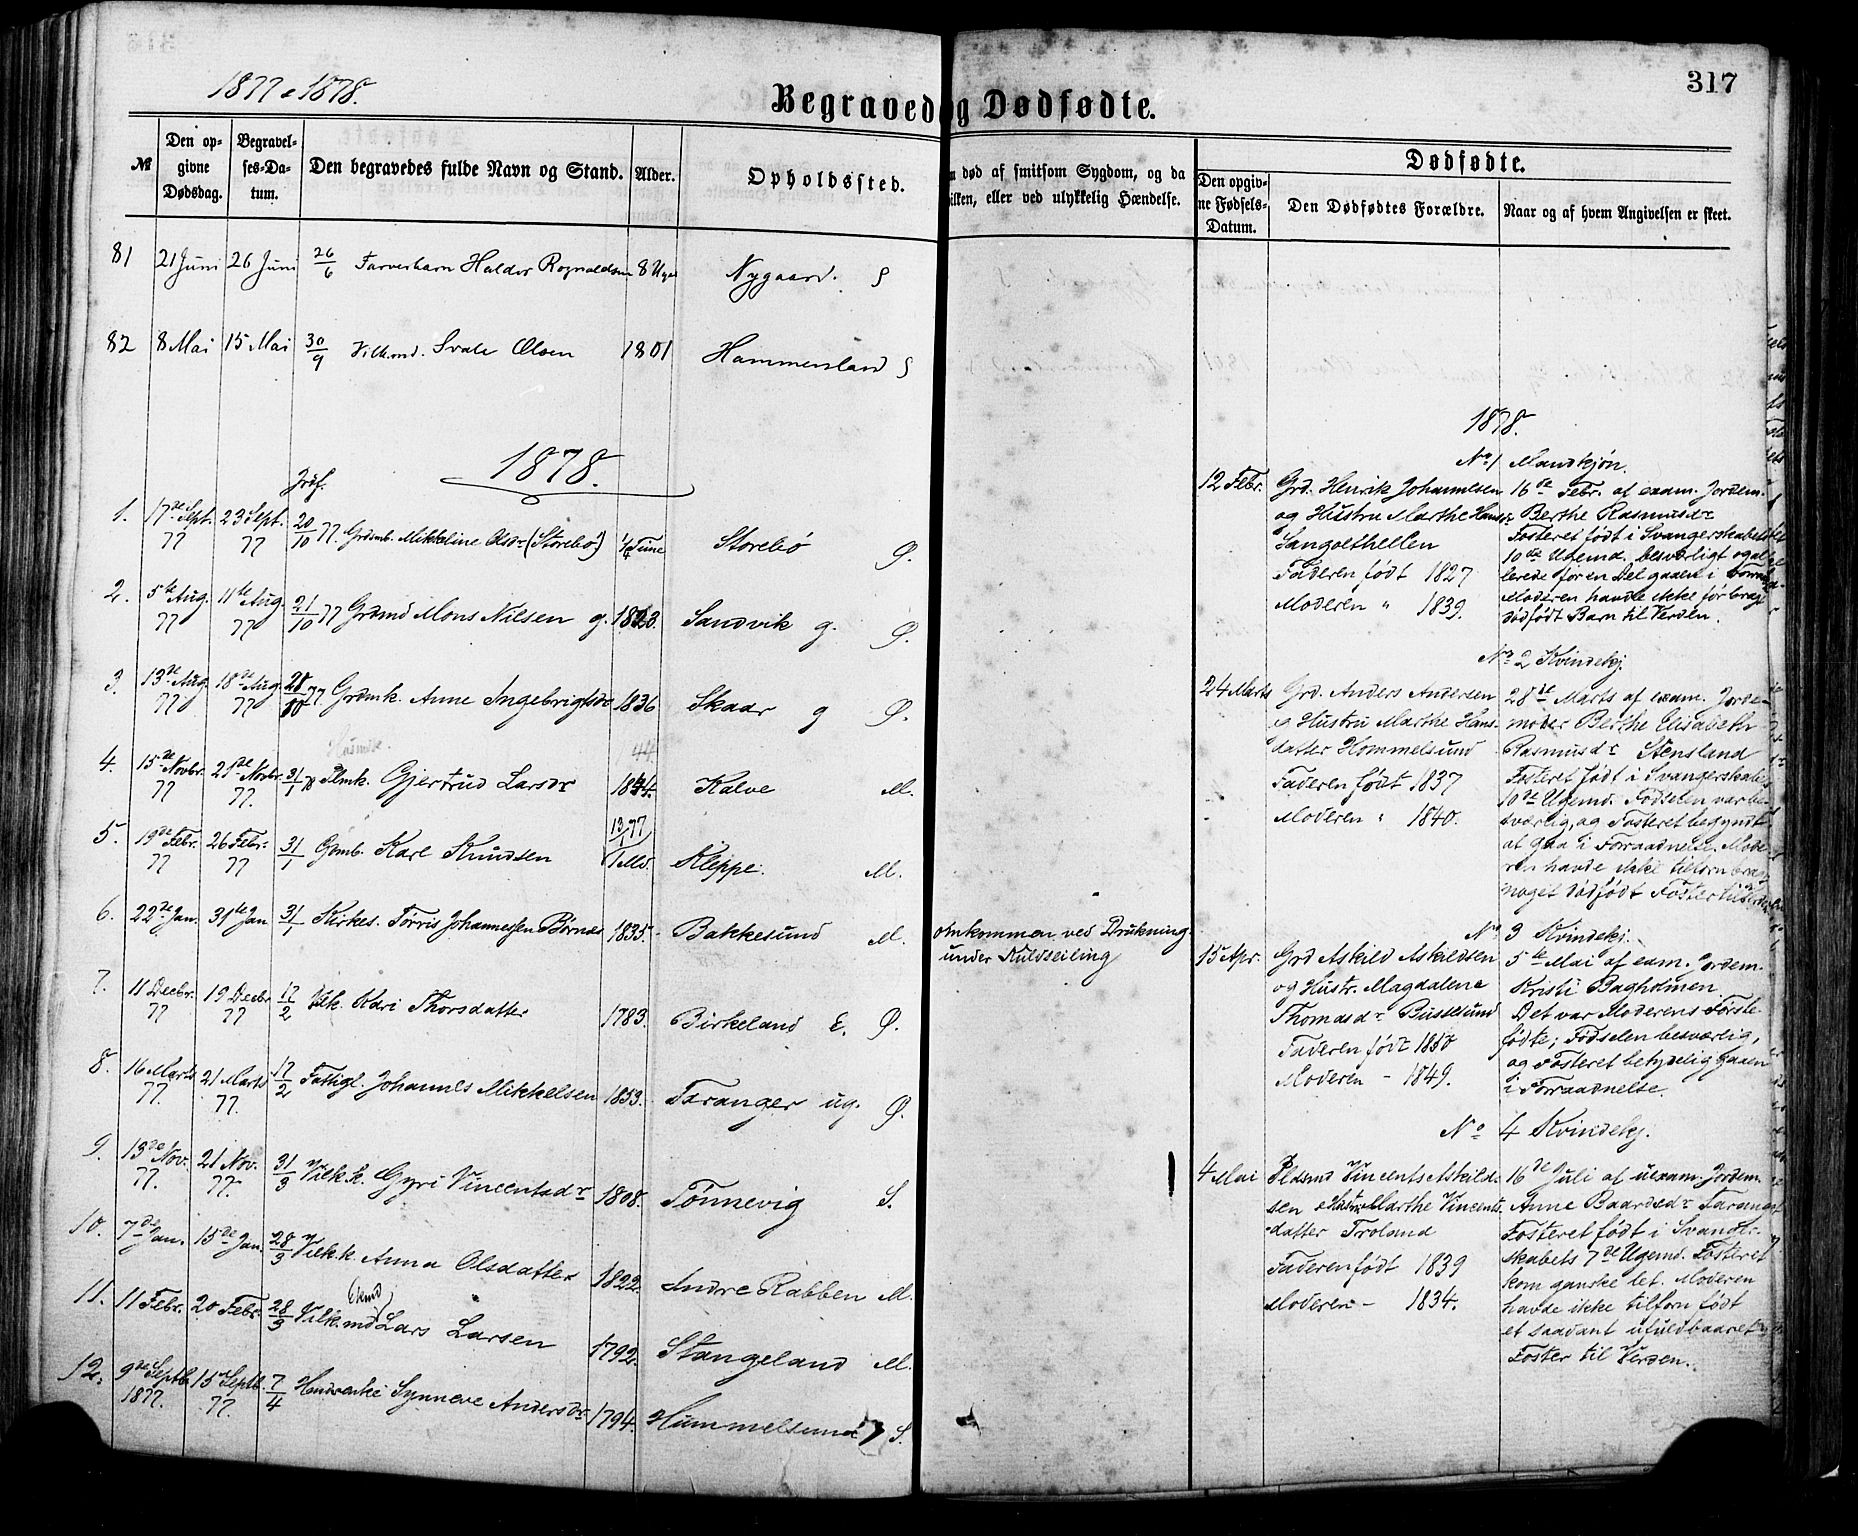 1877 & 1878.
Begravede og Dødfødte.
317
№
Den op-
givne
Dødsdag.
Begravel-
ses-Da-
tum.
Den begravedes fulde Navn og Stand.
Alder.
Opholdssted.
død af smitsom Sygdom, og da
hvilken, eller ved ulykkelig Hændelse.
Dødfødte.
Den opgiv-
ne Fødsels-
Datum.
Den Dødfødtes Forældre.
Naar og af hvem Angivelsen er skeet.
81 21 Juni 26 Juni 26/6 Farverbarn Haldor Rognaldsen 8 Uger Nygaard. S
82 8 Mai 15 Mai 30/9 Vilkmd. Svale Olsen 1801 Hammersland S
1878.
Jrdf.
1. 17de Sept. 77 23 Sept. 77 20/10 77 Grdmb. Mikkeline Olsdr (Storebø) 1/4 Time Storebø Ø.
2. 5te Aug. 77 11te Aug. 77 21/10 77 Grdmd Mons Nilsen g. 1823. Sandvik g. Ø.
3. 13de Aug. 77 18de Aug. 77 28/10 77 Grdmk. Anne Ingebrigtsdr 1836 Skaar g Ø.
Husmk. 44
4. 15de Novbr. 77 21de Novbr. 77. 31/1 78 Plmk. Gjertrud Larsdr 1844. Kalve M.
5. 19de Febr. 77 26 Febr. 77 31/1 Gdmb. Karl Knudsen 13/1 77 1 Md. Kleppe. M.
6. 22de Jan. 31te Jan 31/1 Kirkes. Tørris Johannessen Børnes 1835. Bakkesund M. Omkommen ved Drukning
under Kuldseiling
7. 11 Decbr. 77 19 Decbr 77 17/2 Vilk. Kari Thorsdatter 1783. Birkeland E. Ø.
8. 16 Marts 77. 21 Marts 77. 17/2 Fattigl. Johannes Mikkelsen 1853. Taranger ug. Ø.
9. 13de Nov. 77. 21 Nov. 77. 31/3 Vilk.k. Gyri Vincentsdr 1808. Tønnevig S.
10. 7de Jan. 15de Jan. 28/3 Vilk.k. Anna Olsdatter 1822. Indre Rabben M.
11. 11 Febr. 20 Febr. 28/3 Vilk.md Lars Larsen 1792. Stangeland M.
12. 9de Septb. 1877. 15 Septb. 77. 7/4 Husmenke Synneve Andersdr. 1794. Hummelsund S.
1878.
No 1 Mandkjøn.
12 Febr. Grd. Henrik Johannesen
og Hustru Marthe Hansdr
Sangolthellen
Faderen født 1827
Moderen " 1839.
16de Febr. af exam. Jordem.
Berthe Rasmusdr
Fosteret født i Svangerskabets
10de Ugemd. besværligt og al-
lerede for en Del gaaen i Forraad-
Moderen havde ikke før bragt
dødfødt Barn til Verden.
No 2 Kvindekj.
24 Marts Grd. Anders Andersen
og Hustru Marthe Hans-
datter Hommelsund
Faderen født 1837
Moderen " 1840.
28de Marts af exam. Jorde-
moder Berthe Elisabeth
Rasmusdr Stensland
Fosteret født i Svangerskabets
10de Ugemd. Fødselen var be-
sværlig, og Fosteret begyndt
at gaa i Forraadnelse. Mode-
ren havde ikke tilforn bragt
noget dødfødt Foster til Verden
No 3 Kvindekj.
15 Apr. Grd Askild Askildsen
og Hustr. Magdalene
Thomasdr Bustesund
Faderen født 1850
Moderen - 1849.
5te Mai af exam. Jordem.
Kristi Bagholmen
Det var Moderens Første-
fødte; Fødselen besværlig,
og Fosteret betydelig gaaen
i Forraadnelse.
No 4 Kvindekj.
4 Mai Pldsmd Vincents Askild-
sen & Hustr. Marthe Vincents-
datter Troland
Faderen født 1839
Moderen - 1834.
16de Juli af uexam. Jordem.
Anne Baardsdr Taranger
Fosteret født i Svanger-
skabets 7de Ugemd. Fosteret
kom ganske let. Moderen
havde ikke tilforn født
et saadant ufuldbaaret
Foster til Verden.